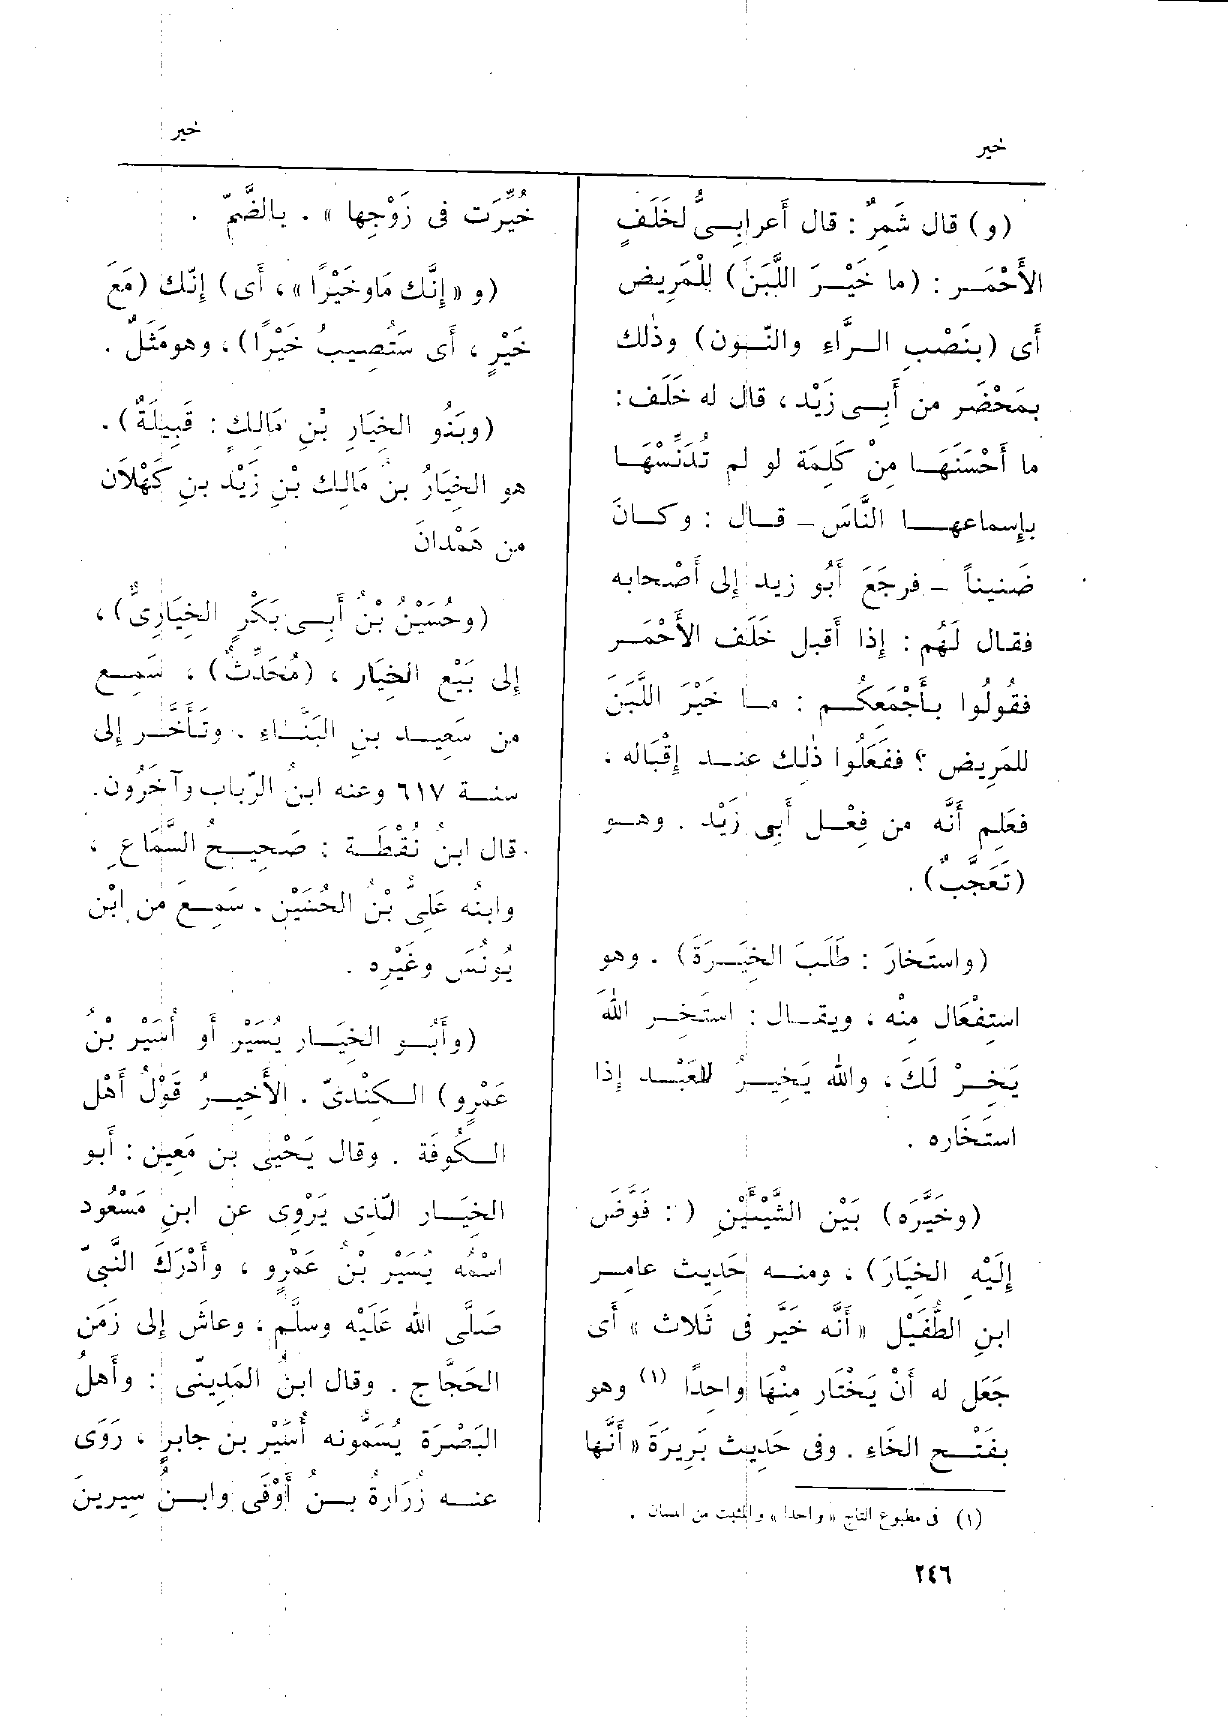 خير
خير
(و) قال شَمِرٌ : قال أَعرابِىٌّ لخَلَفٍ
الأَحْمَر : (ما خَيْرَ اللَّبَنَ) لِلْمَرِيض
أَى (بنَصْبِ الرَّاءِ والنّون) وذٰلك
بمَحْضَر من أَبِى زَيْد ، قال له خَلَف :
ما أَحْسَنَهَا مِنْ كَلِمَة لو لم تُدَنِّسْهَا
بإِسماعها النَّاسَ - قال : وكانَ
ضَنيناً - فرجَعَ أَبُو زيد إلى أَصْحابه
فقال لَهُم : إذا أَقبل خَلَف الأَحْمَر
فقُولُوا بأَجْمَعكُم : ما خَيْرَ اللَّبَنَ
للمَرِيض ؟ ففَعَلُوا ذٰلك عند إِقْبَاله ،
فعَلِم أَنَّه من فِعْل أَبى زَيْد . وهو
(تَعَجُّبٌ) .
(واستَخارَ : طَلَبَ الخِيَرَةَ) . وهو
استِفْعَال مِنْه ، ويقال : استَخِرِ اللهَ
يَخِرْ لَكَ ، والله يَخِيرُ للعَبْد إذا
استَخَاره .
(وخَيَّرَه) بَيْن الشَّيْئَيْنِ ( : فَوَّضَ
إِلَيْهِ الخِيَارَ) ، ومنه حَدِيث عامِر
ابنِ الطُّفَيْل « أَنَّه خَيَّر فى ثَلاث » أَى
جَعَل له أَنْ يَخْتَار مِنْهَا واحِدًا (١) وهو
بفَتْح الخَاء . وفى حَدِيث بَرِيرَةَ « أَنَّها
(١) فى مطبوع التاج « واحدا » والمثبت من اللسان .
خُيِّرَت فى زَوْجِها » . بالضَّمّ .
(و « إِنَّك مَا وخَيْرًا » ، أَى) إِنّك (مَعَ
خَيْرٍ ، أَى سَتُصِيبُ خَيْرًا) ، وهو مَثَلٌ .
(وبَنُو الخِيَارِ بْنِ مَالِكٍ : قَبِيلَةٌ) .
هو الخِيَارُ بنُ مَالِك بْنِ زَيْد بنِ كَهْلَان
من هَمْدانَ
(وحُسَيْنُ بْنُ أَبِى بَكْرٍ الخِيَارِىُّ) ،
إلى بَيْع الخِيَار ، (مُحَدِّثٌ) ، سَمِع
من سَعِيد بنِ البَنَّاءِ . وتَأَخَّر إلى
سنة ٦١٧ وعنه ابنُ الرّبابِ وآخَرُون .
قال ابنُ نُقْطَة : صَحِيحُ السَّمَاعِ ،
وابنُه عَلِىُّ بْنُ الحُسَيْن . سَمِعَ من ابْن
يُونُسَ وغَيْرِه .
(وأَبُو الخِيَار يُسَيْر أو أُسَيْر بْنُ
عَمْرٍو) الكِنْدىّ . الأَخِيرُ قَوْلُ أَهْل
الكُوفَة . وقال يَحْيَى بن مَعِين : أَبو
الخِيَار الّذِى يَرْوِى عن ابنِ مَسْعُود
اسْمُه يُسَيْر بْنُ عَمْرٍو ، وأَدْرَكَ النَّبِىّ
صَلَّى الله عَلَيْه وسلَّم ، وعاشَ إلى زَمَنِ
الحَجَّاج . وقال ابنُ المَدِينىّ : وأَهلُ
البَصْرَة يُسَمُّونه أُسَيْر بن جابِرٍ ، رَوَى
عنه زُرَارةُ بنُ أَوْفَى وابنُ سِيرِينَ
٢٤٦